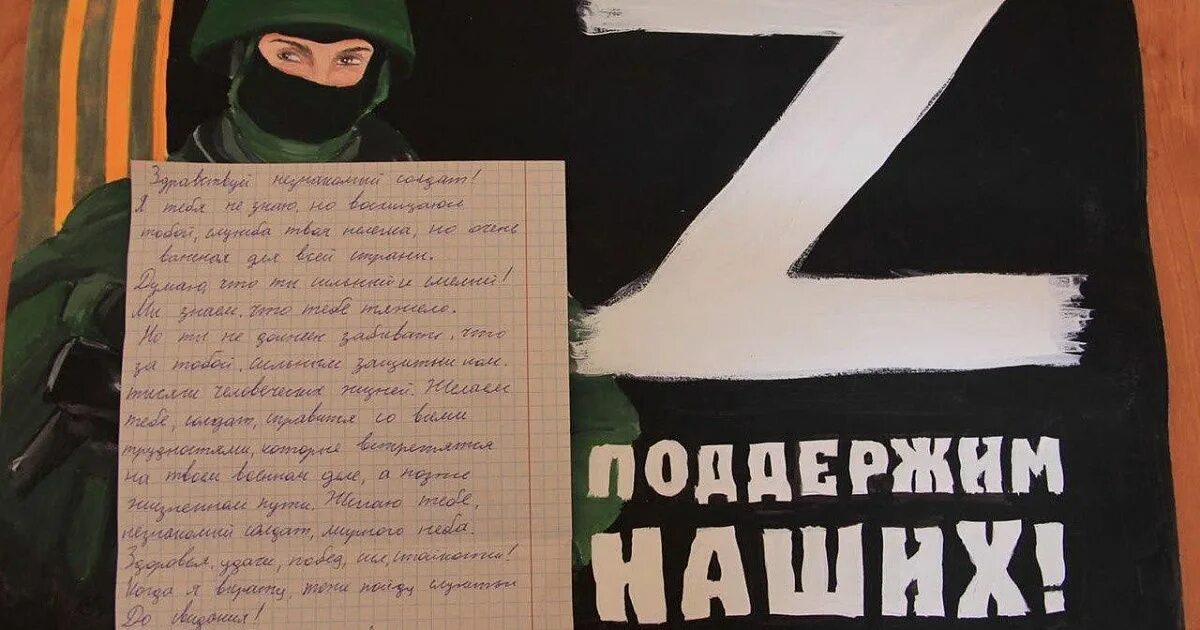 Здравствуй незнакомый солдат!
Я тебя не знаю, но восхищаюсь
тобой, служба твоя нелегка, но очень
важная для всей страны.
Думаю, что ты сильный и смелый!
Мы знаем, что тебе тяжело.
Но ты не должен забывать, что
за тобой, сильным защитником.
тысячи человеческих жизней. Желаем
тебе, солдат, справится со всеми
трудностями, которые встретятся
на твоем военном деле, а позже
жизненном пути. Желаю тебе,
незнакомый солдат, мирного неба.
Здоровья, удачи, побед, сил,
Когда я вырасту, тоже пойду служить
До свидания!
Z
ПОДДЕРЖИМ
НАШИХ!